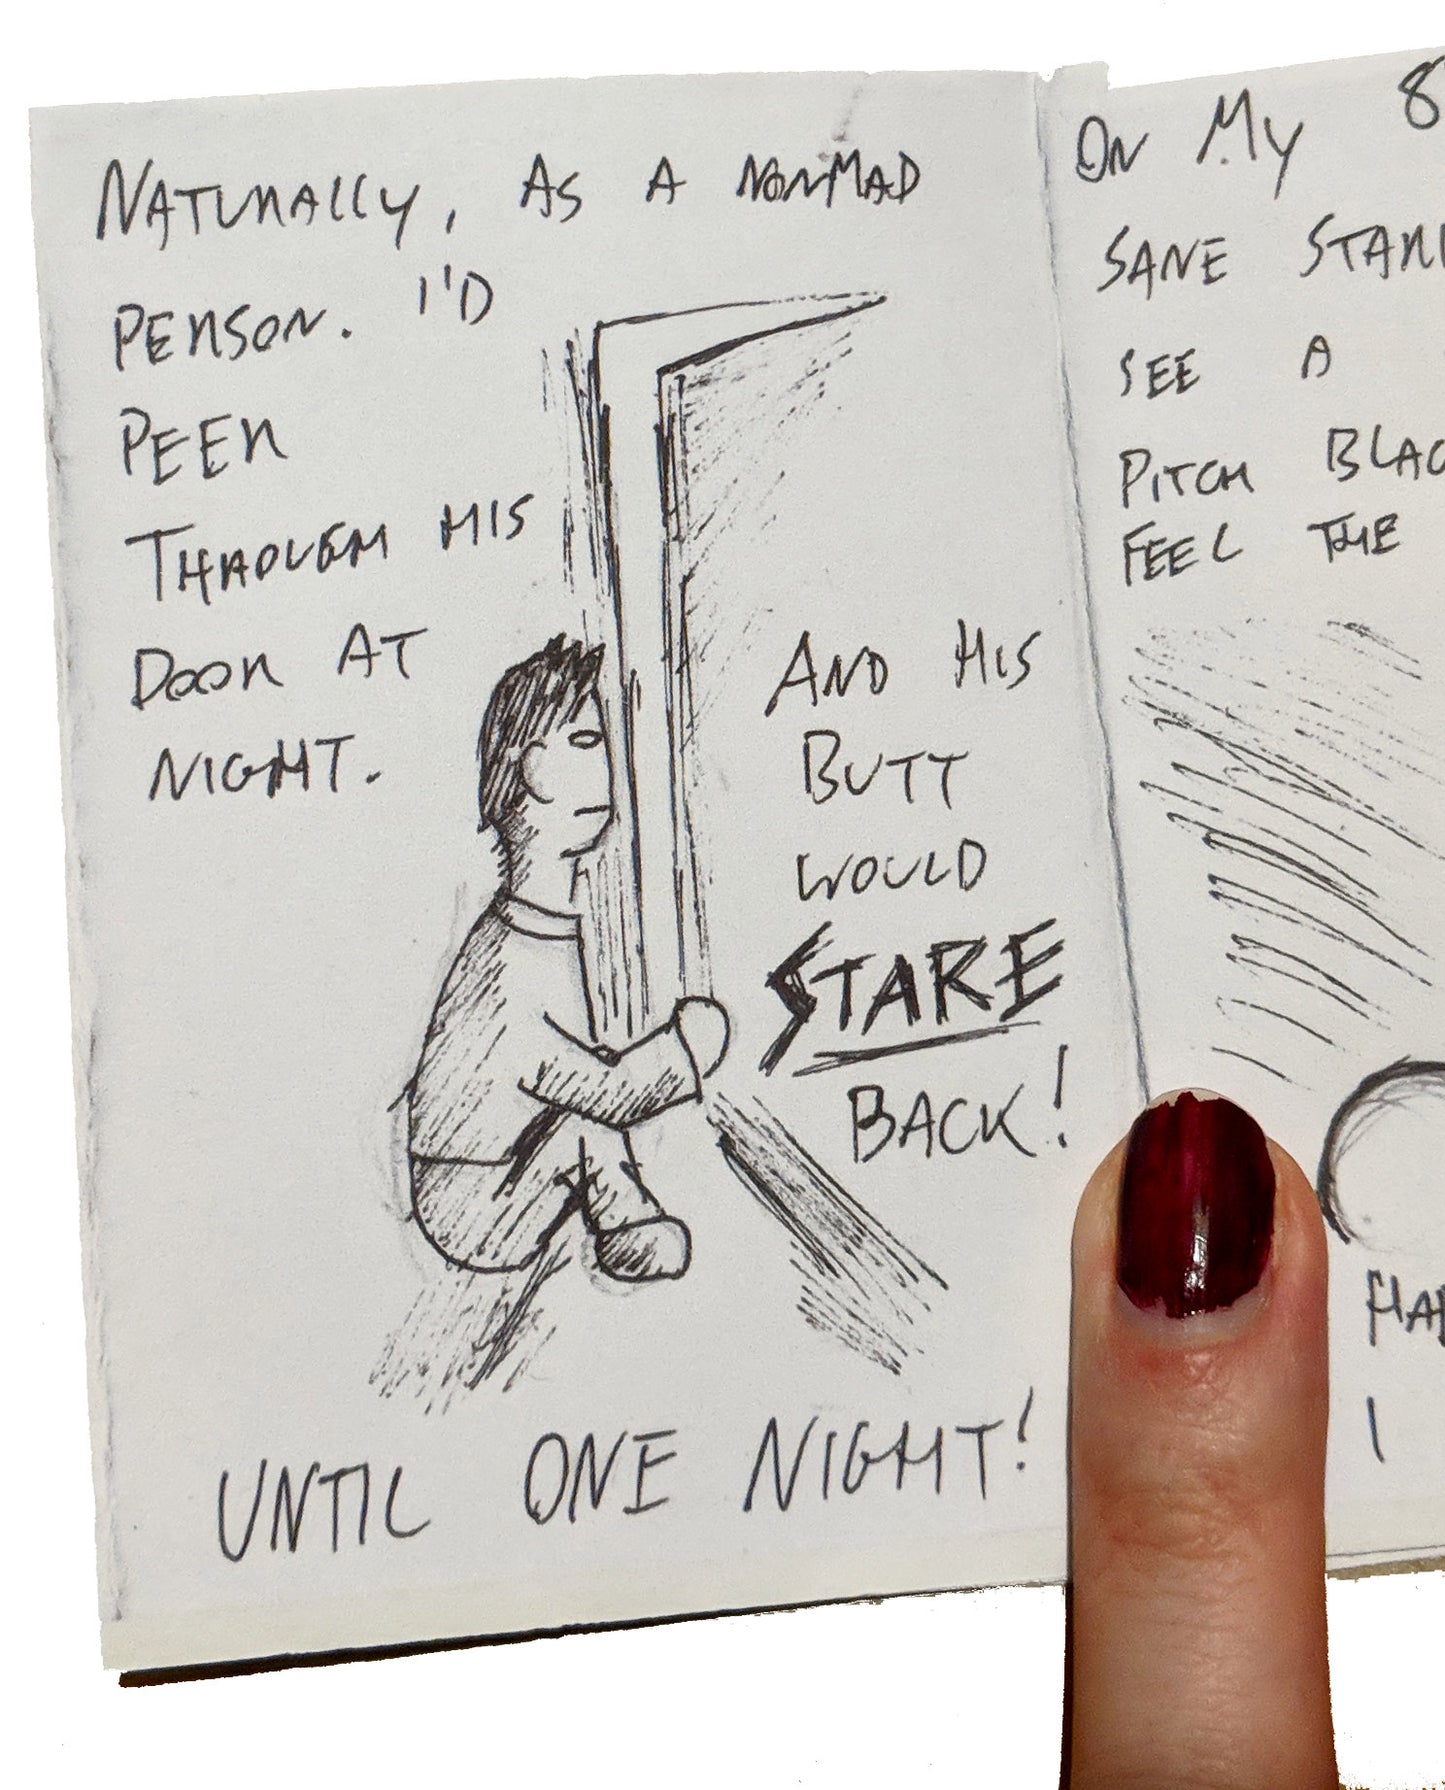 NATURALLY, AS A NORMAD
PERSON. I'D
PEER
THROUGH HIS
DOOR AT
NIGHT.
AND HIS
BUTT
WOULD
STARE
BACK!
UNTIL ONE NIGHT!
ON MY 8
SANE STARI
SEE A
PITCH BLAC
FEEL THE
I